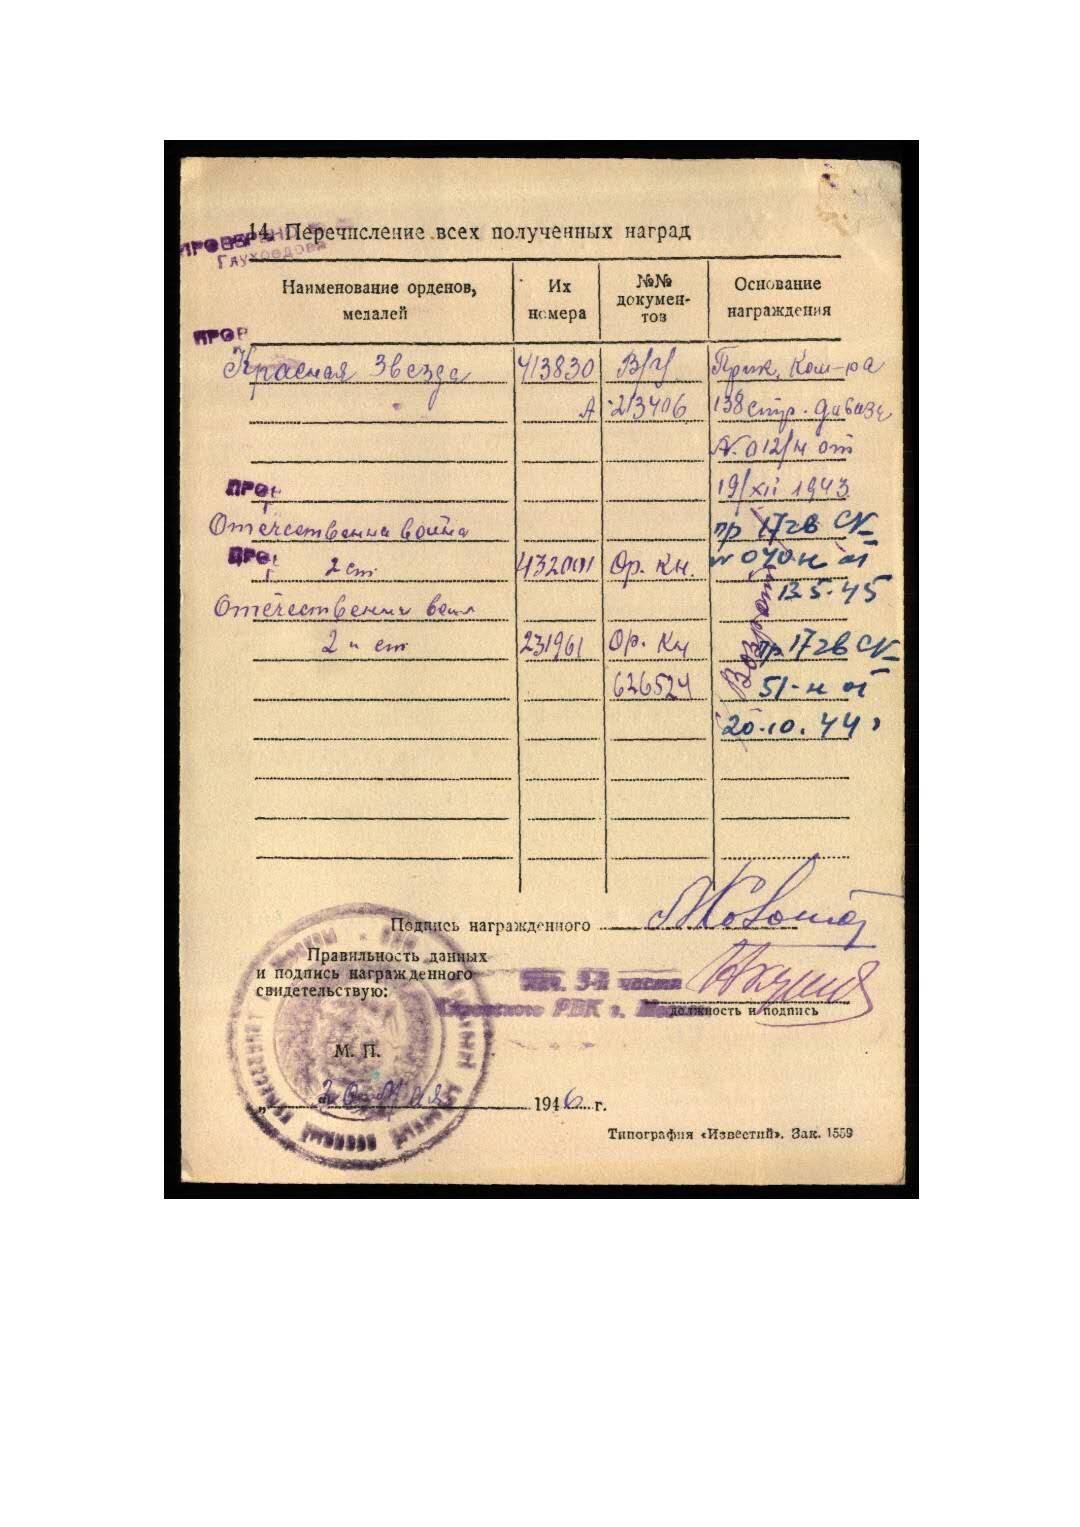 14. Перечисление всех полученных наград
ПРОВЕРЕНО
Глуховцова
Наименование орденов, медалей
Их номера
№№ докумен-тов
Основание награждения
ПРОВ
Красная Звезда 413830 В/Ч Прик. Ком-ра
А 213406 138 стр. дивизи
N. 012/н от
ПРОВ 19/XII 1943
Отечественна война пр 17 гв СК
ПРОВ 2 ст Ор. Кн. N 040н от
13.5.45
Отечественни воин
2 и ст 231961 Ор. Кн пр 17 гв СК
626524 51-н от
20.10.44
Возврат
Подпись награжденного
Правильность данных
и подпись награжденного
свидетельствую:
Нач. 3-й части
РВК г.
должность и подпись
М. П.
„20“ мая 1946 г.
Типография «Известий». Зак. 1559